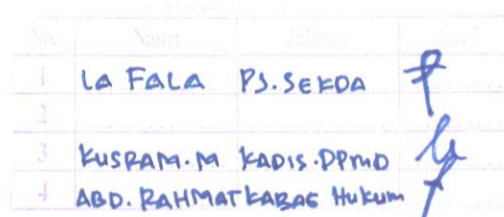 No. Nama Jabatan Paraf
1 LA FALA PJ. SEKDA
2
3 KUSRAM. M KADIS. DPMD
4 ABD. RAHMAT KABAG HUKUM